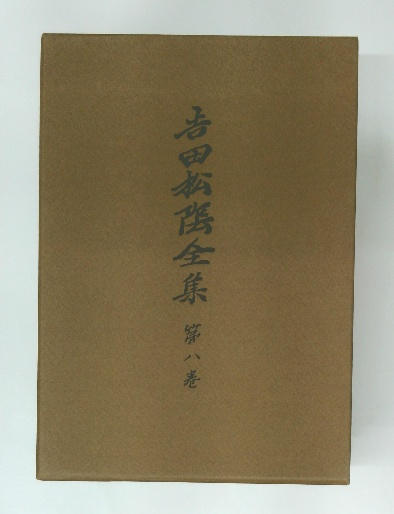 吉田松陰全集 第八巻